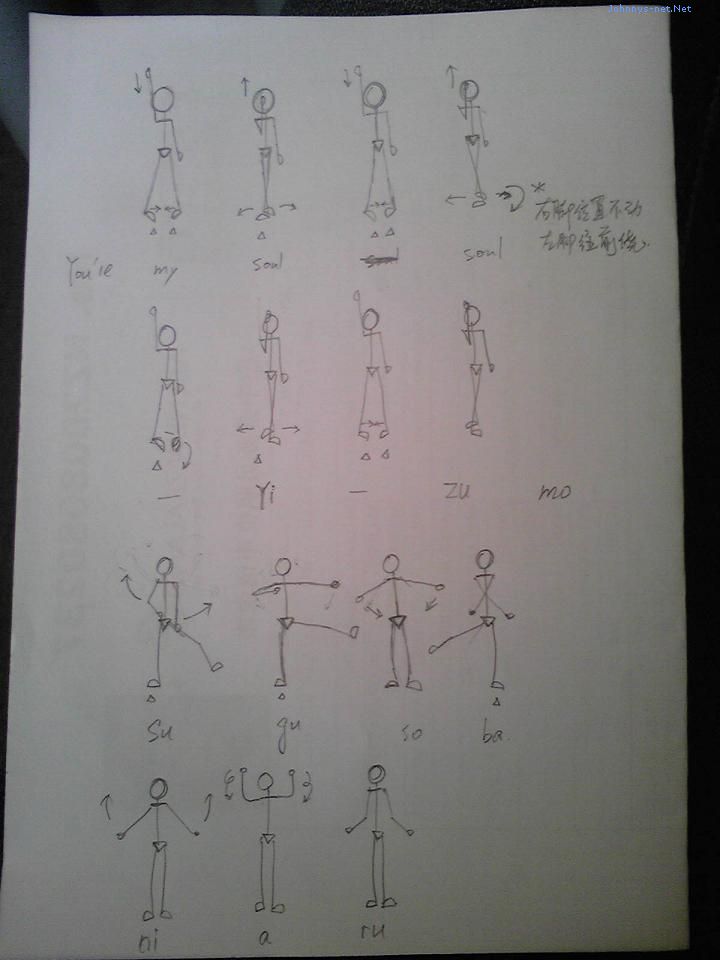 Johnnys-net.Net
You're my soul soul soul
*
右脚位置不动
左脚往前绕
— Yi — zu mo
Su gu so ba
ni a ru